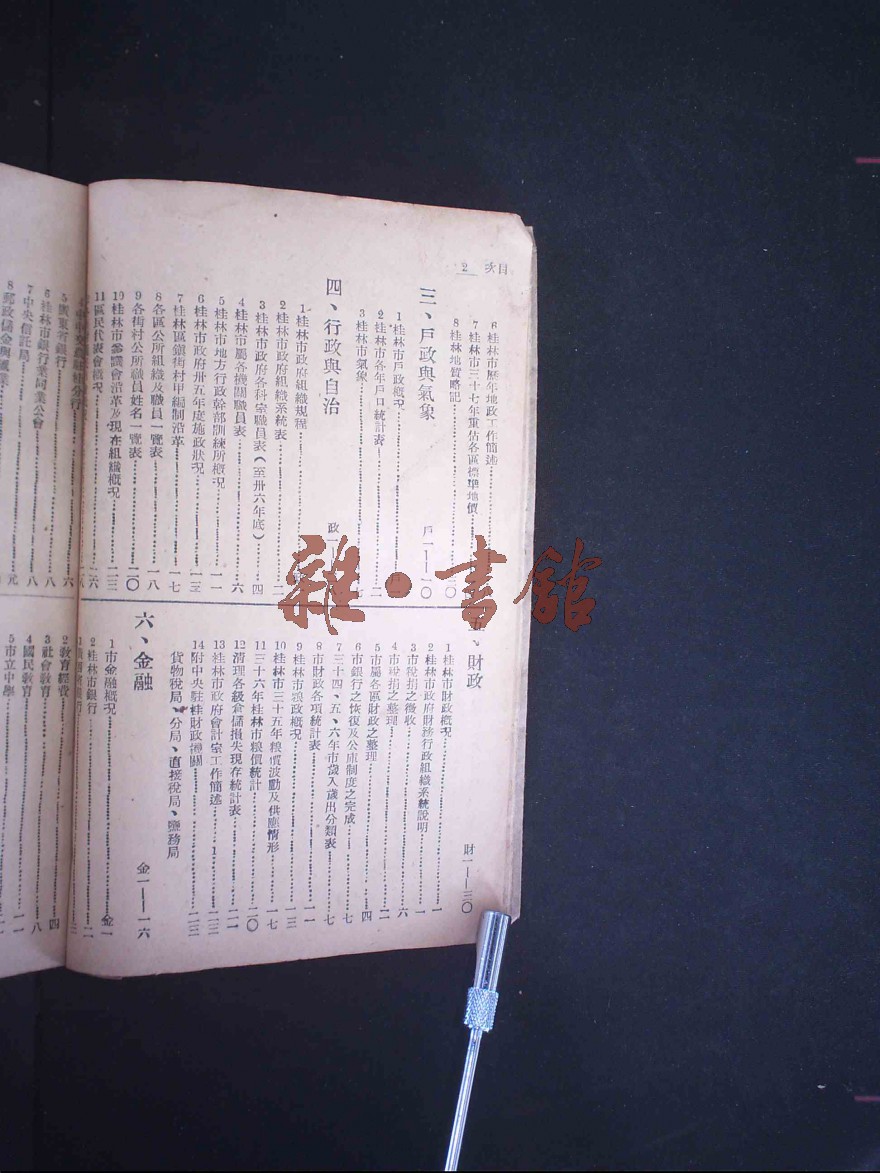 目次 2
6 桂林市歷年地政工作簡述
7 桂林市三十七年重估各區標準地價
8 桂林地質略記
三、戶政與氣象 戶一——一〇
1 桂林市戶政概況
2 桂林市各年戶口統計表 二
3 桂林市氣象
四、行政與自治 政一
1 桂林市政府組織規程
2 桂林市政府組織系統表 二
3 桂林市政府各科室職員表(至卅六年底) 四
4 桂林市屬各機關職員表 六
5 桂林市地方行政幹部訓練所概況 一一
6 桂林市政府卅五年度施政狀況 一三
7 桂林區鎮街村甲編制沿革 一七
8 各區公所組織及職員一覽表 一八
9 各街村公所職員姓名一覽表 二〇
10 桂林市參議會沿革及現在組織概況 二三
11 區民代表會概況 二六
五、財政 財一——三〇
1 桂林市財政概況 一
2 桂林市政府財務行政組織系統說明 一
3 市稅捐之徵收 六
4 市稅捐之整理 二
5 市屬各區財政之整理 四
6 市銀行之恢復及公庫制度之完成 七
7 三十四、五、六年市歲入歲出分類表 七
8 市財政各項統計表 一一
9 桂林市糧政概況 一三
10 桂林市三十五年糧價波動及供應情形 一七
11 三十六年桂林市糧價統計 二〇
12 清理各級倉儲損失現存統計表 二一
13 桂林市政府會計室工作簡述 二三
14 附中央駐桂財政機關 二三
貨物稅局、分局、直接稅局、鹽務局
六、金融 金一——一六
1 市金融概況 金一
2 桂林市銀行 二
5 廣東省銀行 六
6 桂林市銀行業同業公會 八
7 中央信託局 八
8 郵政儲金與匯業 元
2 教育經費
3 社會教育 四
4 國民教育 八
5 市立中學
雜·書館